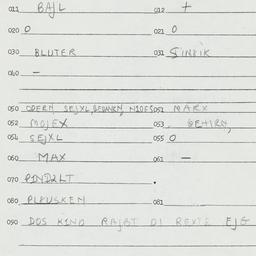 011 BAJL 012 +
020 O 021 O
030 BLUTER 031 SINKIK
040 —
050 ODERN SEJXL, 051 MARX
052 MOJEX 053 GEHIRN,
054 SEJXL 055 O
060 MAX 061 —
070
080 PLEUSKEN 081
090 DOS KIND RAJBT DI REXTE EJG